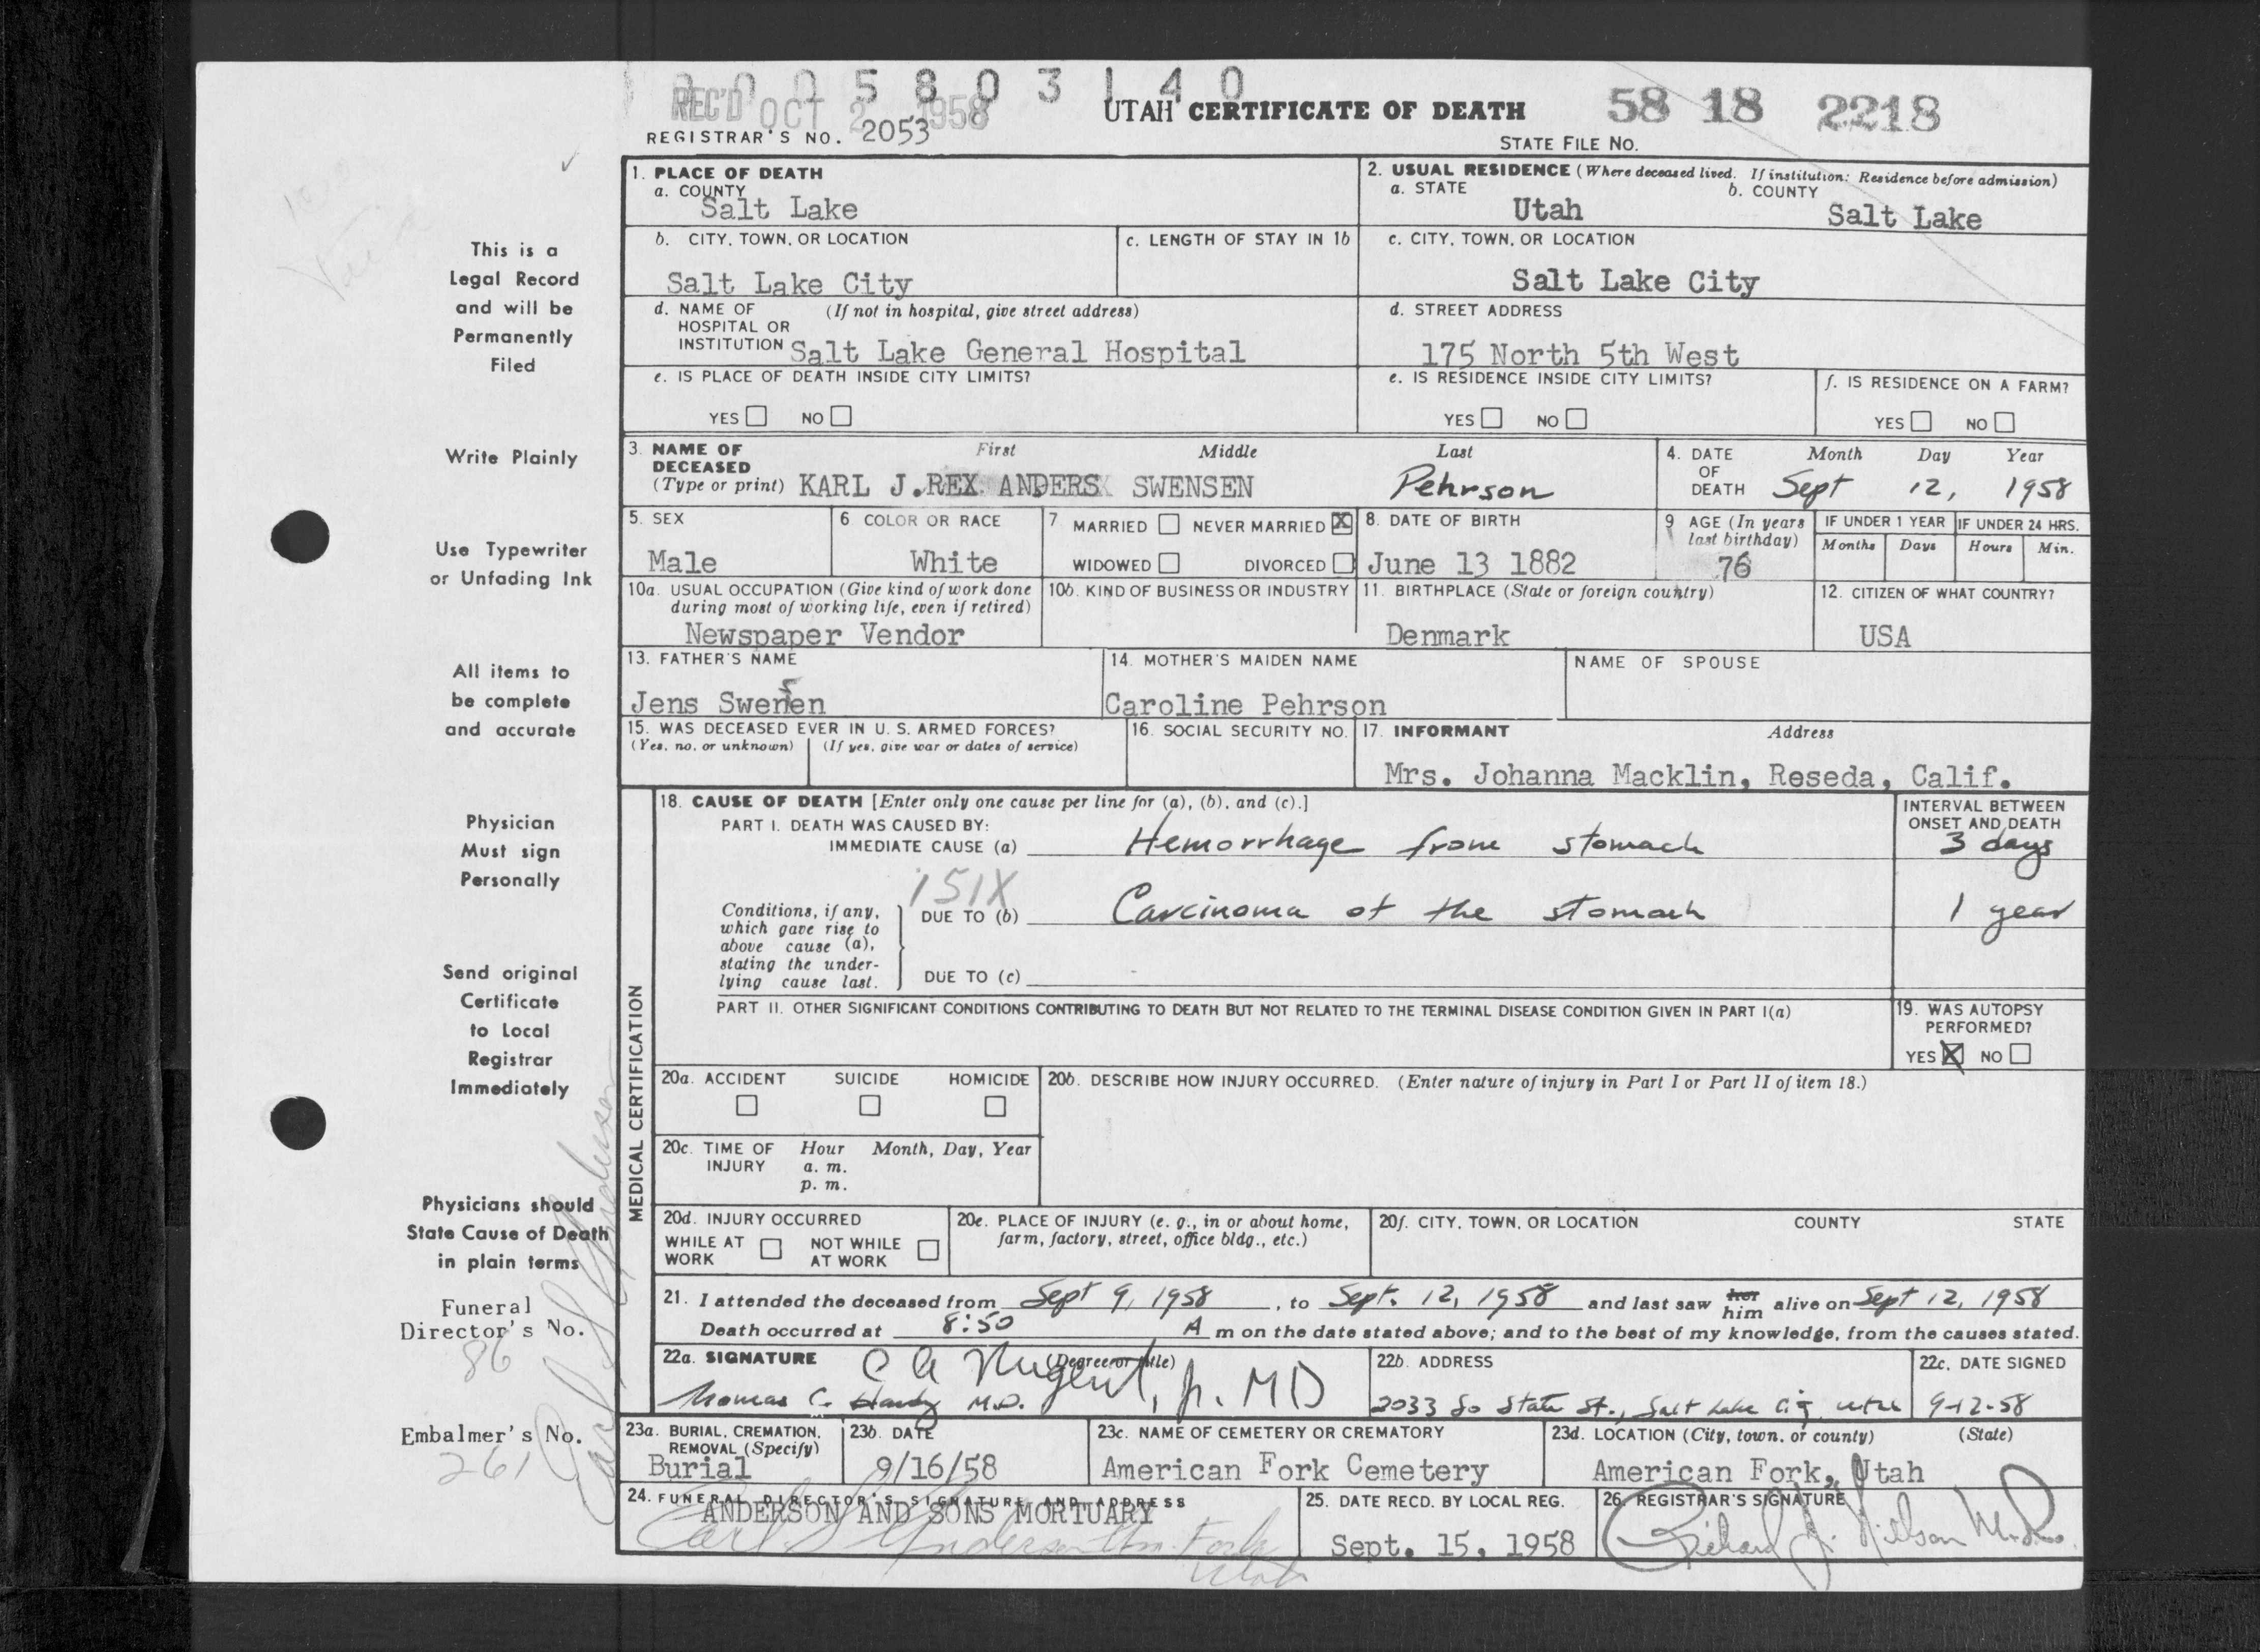 2 0 0 5 8 0 3 1 4 0
REC'D OCT 2 1958
UTAH CERTIFICATE OF DEATH
58 18 2218
REGISTRAR'S NO. 2053
STATE FILE NO.
This is a
Legal Record
and will be
Permanently
Filed
Write Plainly
Use Typewriter
or Unfading Ink
All items to
be complete
and accurate
Physician
Must sign
Personally
Send original
Certificate
to Local
Registrar
Immediately
Physicians should
State Cause of Death
in plain terms
Funeral
Director's No.
86
Embalmer's No.
261
1. PLACE OF DEATH
a. COUNTY
Salt Lake
2. USUAL RESIDENCE (Where deceased lived. If institution: Residence before admission)
a. STATE b. COUNTY
Utah Salt Lake
b. CITY, TOWN, OR LOCATION
Salt Lake City
c. LENGTH OF STAY IN 1b
c. CITY, TOWN, OR LOCATION
Salt Lake City
d. NAME OF (If not in hospital, give street address)
HOSPITAL OR
INSTITUTION Salt Lake General Hospital
d. STREET ADDRESS
175 North 5th West
e. IS PLACE OF DEATH INSIDE CITY LIMITS?
YES NO
e. IS RESIDENCE INSIDE CITY LIMITS?
YES NO
f. IS RESIDENCE ON A FARM?
YES NO
3. NAME OF First Middle Last
DECEASED
(Type or print) KARL J. REX ANDERS SWENSEN Pehrson
4. DATE Month Day Year
OF
DEATH Sept 12, 1958
5. SEX
Male
6 COLOR OR RACE
White
7 MARRIED NEVER MARRIED X
WIDOWED DIVORCED
8. DATE OF BIRTH
June 13 1882
9 AGE (In years
last birthday)
76
IF UNDER 1 YEAR
Months Days
IF UNDER 24 HRS.
Hours Min.
10a. USUAL OCCUPATION (Give kind of work done
during most of working life, even if retired)
Newspaper Vendor
10b. KIND OF BUSINESS OR INDUSTRY
11. BIRTHPLACE (State or foreign country)
Denmark
12. CITIZEN OF WHAT COUNTRY?
USA
13. FATHER'S NAME
Jens Swensen
14. MOTHER'S MAIDEN NAME
Caroline Pehrson
NAME OF SPOUSE
15. WAS DECEASED EVER IN U. S. ARMED FORCES?
(Yes, no, or unknown) (If yes, give war or dates of service)
16. SOCIAL SECURITY NO.
17. INFORMANT Address
Mrs. Johanna Macklin, Reseda, Calif.
MEDICAL CERTIFICATION
18. CAUSE OF DEATH [Enter only one cause per line for (a), (b), and (c).]
PART I. DEATH WAS CAUSED BY:
IMMEDIATE CAUSE (a) Hemorrhage from stomach
INTERVAL BETWEEN
ONSET AND DEATH
3 days
151X
Conditions, if any,
which gave rise to
above cause (a),
stating the under-
lying cause last.
DUE TO (b) Carcinoma of the stomach
1 year
DUE TO (c)
PART II. OTHER SIGNIFICANT CONDITIONS CONTRIBUTING TO DEATH BUT NOT RELATED TO THE TERMINAL DISEASE CONDITION GIVEN IN PART I(a)
19. WAS AUTOPSY
PERFORMED?
YES X NO
20a. ACCIDENT SUICIDE HOMICIDE
20b. DESCRIBE HOW INJURY OCCURRED. (Enter nature of injury in Part I or Part II of item 18.)
20c. TIME OF Hour Month, Day, Year
INJURY a. m.
p. m.
20d. INJURY OCCURRED
WHILE AT NOT WHILE
WORK AT WORK
20e. PLACE OF INJURY (e. g., in or about home,
farm, factory, street, office bldg., etc.)
20f. CITY, TOWN, OR LOCATION COUNTY STATE
21. I attended the deceased from Sept 9, 1958, to Sept. 12, 1958 and last saw her him alive on Sept 12, 1958
Death occurred at 8:50 A m on the date stated above; and to the best of my knowledge, from the causes stated.
22a. SIGNATURE (Degree or title)
C A Nugent, Jr. MD
Thomas C. Hardy M.D.
22b. ADDRESS
2033 So State St., Salt Lake City Utah
22c. DATE SIGNED
9-12-58
23a. BURIAL, CREMATION,
REMOVAL (Specify)
Burial
23b. DATE
9/16/58
23c. NAME OF CEMETERY OR CREMATORY
American Fork Cemetery
23d. LOCATION (City, town, or county) (State)
American Fork, Utah
24. FUNERAL DIRECTOR'S SIGNATURE AND ADDRESS
ANDERSON AND SONS MORTUARY
Carl S Anderson Am. Fork
Utah
25. DATE RECD. BY LOCAL REG.
Sept. 15, 1958
26. REGISTRAR'S SIGNATURE
Richard J. Nielson M.D.